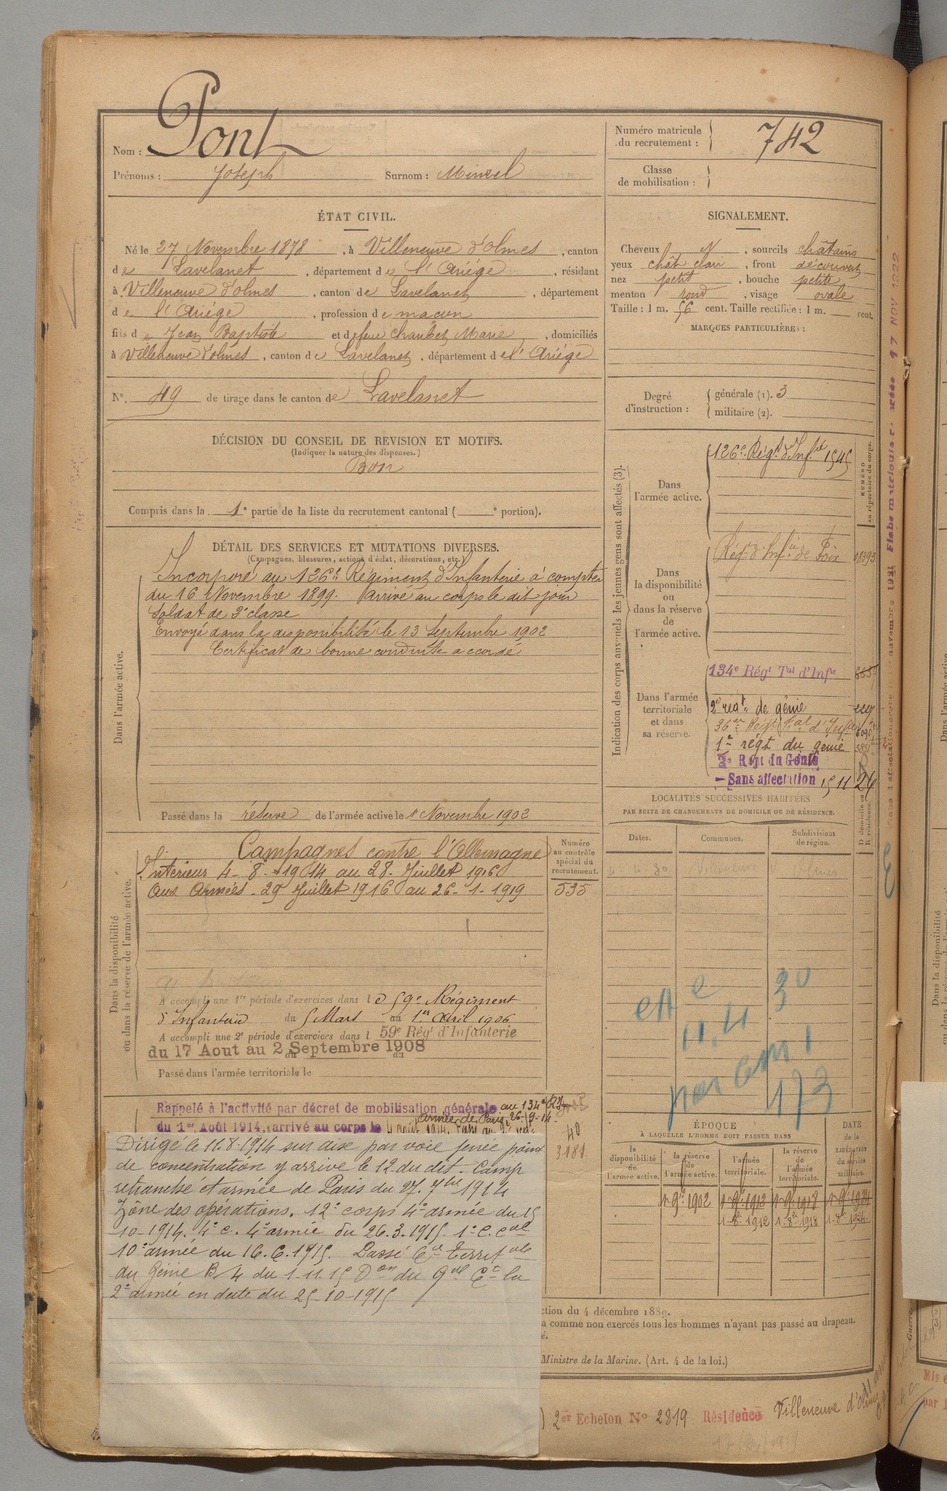 Nom : Pont
Prénoms : Joseph Surnom : Mincel
ÉTAT CIVIL.
Né le 27 Novembre 1878, à Villeneuve d'Olmes, canton
de Lavelanet, département de l'Ariège, résidant
à Villeneuve d'olmes, canton de Lavelanet, département
de l'Ariège, profession de maçon
fils de Jean Baptiste et de feue Chaubet Marie, domiciliés
à Villeneuve d'olmes, canton de Lavelanet, département de l'Ariège
N° 49 de tirage dans le canton de Lavelanet
DÉCISION DU CONSEIL DE REVISION ET MOTIFS.
(Indiquer la nature des dispenses.)
Bon
Compris dans la 1e partie de la liste du recrutement cantonal ( e portion).
DÉTAIL DES SERVICES ET MUTATIONS DIVERSES.
(Campagnes, blessures, actions d'éclat, décorations, etc.)
Dans l'armée active.
Incorporé au 126e Régiment d'Infanterie à compter
du 16 Novembre 1899. Arrivé au corps le dit jour
Soldat de 2e classe
Envoyé dans la disponibilité le 13 Septembre 1902
Certificat de bonne conduite accordé
Passé dans la réserve de l'armée active le 1 Novembre 1902
Dans la disponibilité
ou dans la réserve de l'armée active.
Campagnes contre l'Allemagne
Intérieur 4-8-1914 au 28 Juillet 1916
Aux Armées 29 Juillet 1916 au 26-1-1919
Numéro
au contrôle
spécial du
recrutement.
535
A accompli une 1re période d'exercices dans le 59e Régiment
d'Infanterie du 5 Mars au 1er Avril 1906
A accompli une 2e période d'exercices dans l 59e Régt d'Infanterie
du 17 Aout au 2 Septembre 1908
Passé dans l'armée territoriale le
Rappelé à l'activité par décret de mobilisation générale au 134e
du 1er Août 1914, arrivé au corps le
Dirigé le 11.8.1914 sur aix par voie ferrée point
de concentration y arrive le 12 du dit. Camp
retranché et armée de Paris du 27. 7bre 1914
Zône des opérations. 12e corps 4e armée du 15
10-1914. 4e c. 4e armée du 26.3.1915. 1e C. Cal
10e armée du 16.6.1915. Passé Cie Terrale
du Génie B/4 du 1-11-15 Don du Gal Ct la
2e armée en date du 25-10-1915
Numéro matricule
du recrutement : 742
Classe
de mobilisation :
SIGNALEMENT.
Cheveux N, sourcils châtains
yeux chât clair, front découvert
nez petit, bouche petite
menton rond, visage ovale
Taille : 1 m. 56 cent. Taille rectifiée : 1 m. cent.
MARQUES PARTICULIÈRES :
Degré
d'instruction :
générale (1). 3
militaire (2).
Indication des corps auxquels les jeunes gens sont affectés (3).
Dans
l'armée active.
126e Régt d'Infie 1545
Dans
la disponibilité
ou
dans la réserve
de
l'armée active.
Régt d'Infie de Foix
Dans l'armée
territoriale
et dans
sa réserve.
134e Régt Tal d'Infie
2e régt de génie
36e Régt Tal d'Infie
1er régt du génie
2e Régt du Génie
Sans affectation
LOCALITÉS SUCCESSIVES HABITÉES
PAR SUITE DE CHANGEMENTS DE DOMICILE OU DE RÉSIDENCE.
Dates.
Communes.
Subdivisions
de région.
ÉPOQUE
À LAQUELLE L'HOMME DOIT PASSER DANS
la
disponibilité
de
l'armée active.
la réserve
de
l'armée active.
l'armée
territoriale.
la réserve
de
l'armée
territoriale.
DATE
de la
LIBÉRATION
du service
militaire.
ction du 4 décembre 1889.
a comme non exercés tous les hommes n'ayant pas passé au drapeau.
é.
Ministre de la Marine. (Art. 4 de la loi.)
2er Echelon No 2819 Résidence Villeneuve d'olmes